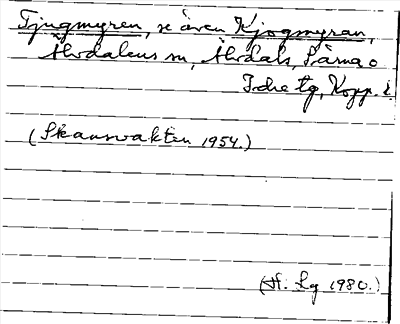 Tjugmyren, se även Kjogmyran,
Älvdalens sn, Älvdals, Särna o
Idre tg, Kopp. l.
(Skansvakten 1954.)
(H. Lg 1980.)